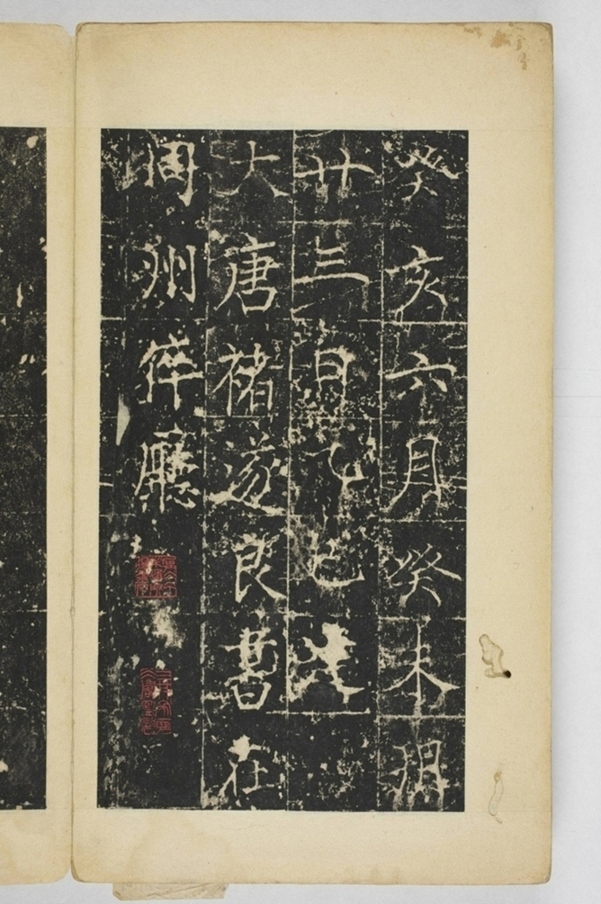 癸亥六月癸未朔
廿三日乙巳建
大唐褚遂良書在
同州倅廳